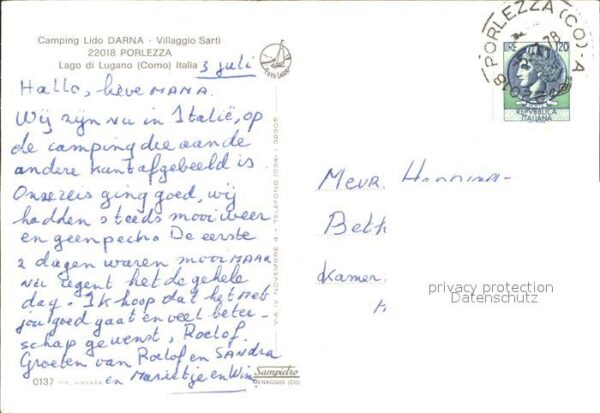 Camping Lido DARNA - Villaggio Sarti
22018 PORLEZZA
Lago di Lugano (Como) Italia
3 juli
Hallo, lieve MANA.
Wij zijn nu in Italië, op
de camping die aan de
andere kant afgebeeld is.
Onze reis ging goed, wij
hadden steeds mooi weer
en geen pech. De eerste
2 dagen waren mooi MAAR
nu regent het de gehele
day. Ik hoop dat het met
jou goed gaat en veel beter-
schap gewenst, Roelof.
Groeten van Roelof en SANDRA
en Marietje en Wim
0137
Sampietro
MENAGGIO (CO)
VIA IV NOVEMBRE 4 - TELEFONO (0344) 32306
PORLEZZA (CO) - A
22018
78
LIRE 120
REPVBBLICA
ITALIANA
Mevr.
Beth
Kamer
privacy protection
Datenschutz